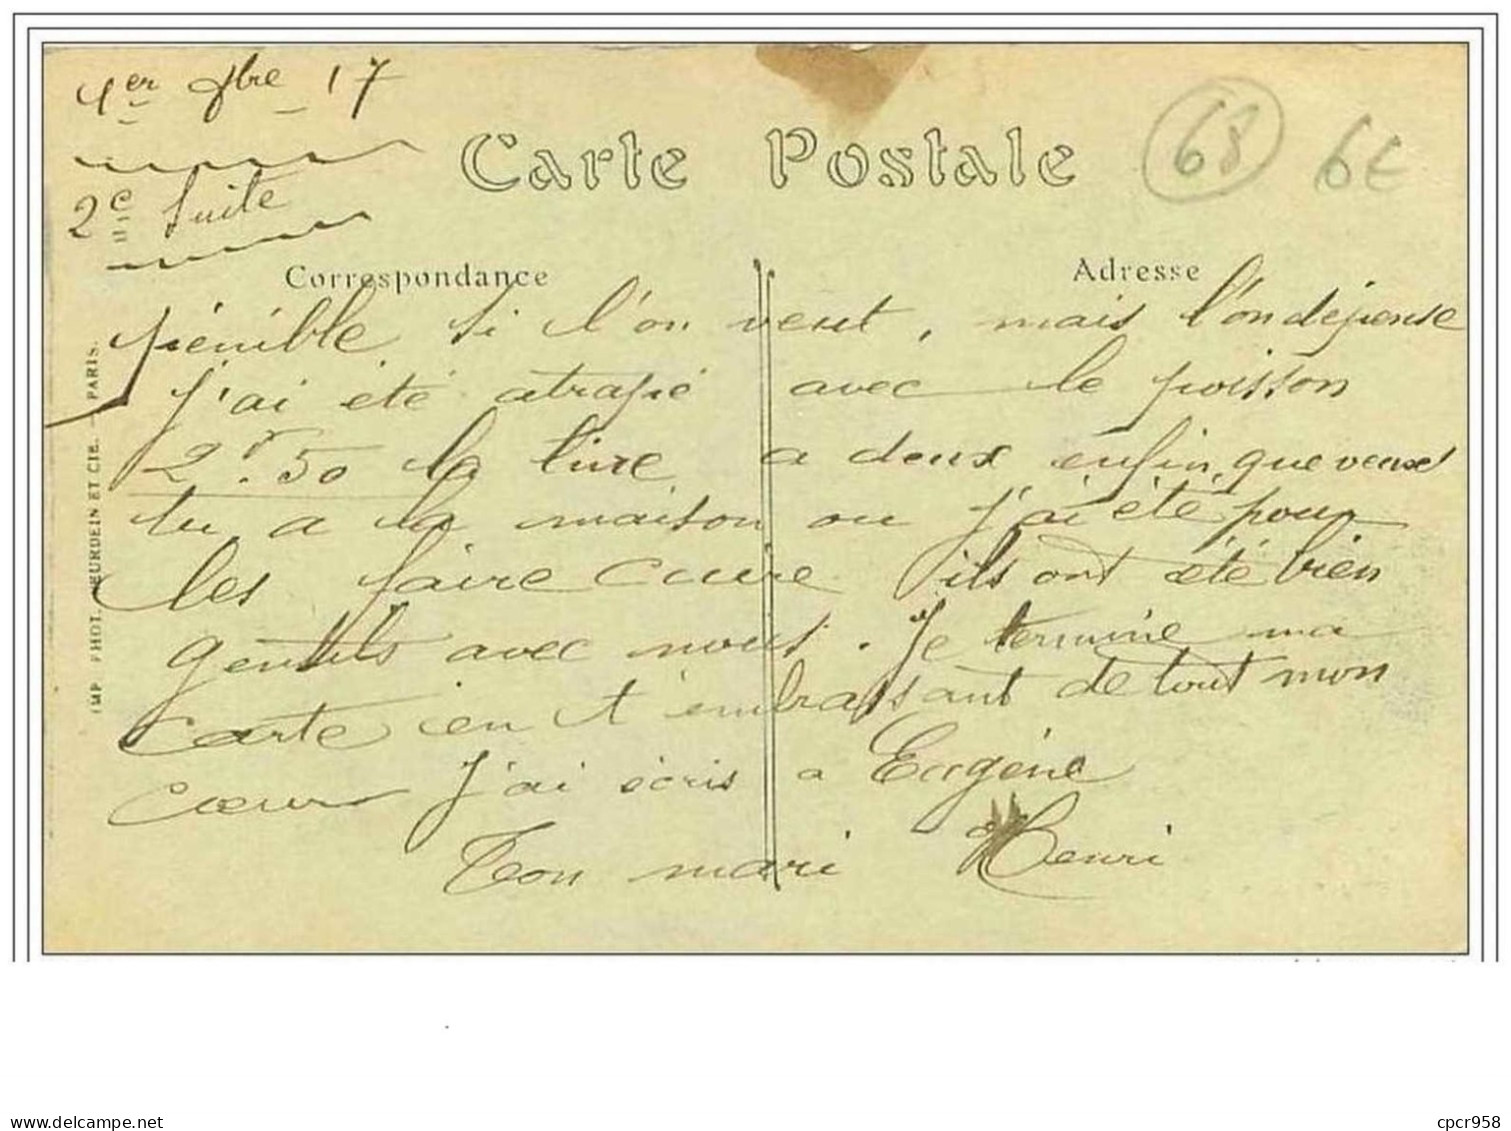 1er 9bre 17
2e suite
Carte Postale
68
6€
Correspondance
Adresse
pénible si l'on veut, mais l'on dépense
j'ai été atrapé avec le poisson
2f.50 la livre a deux enfin que veux
tu a la maison ou j'ai été pour
les faire cuire ils ont été bien
gentils avec nous. Je termine ma
carte en t'embrassant de tout mon
cœur j'ai écris a Eugène
Ton mari Henri
IMP. PHOT. NEURDEIN ET CIE. - PARIS.
delcampe.net
cpcr958